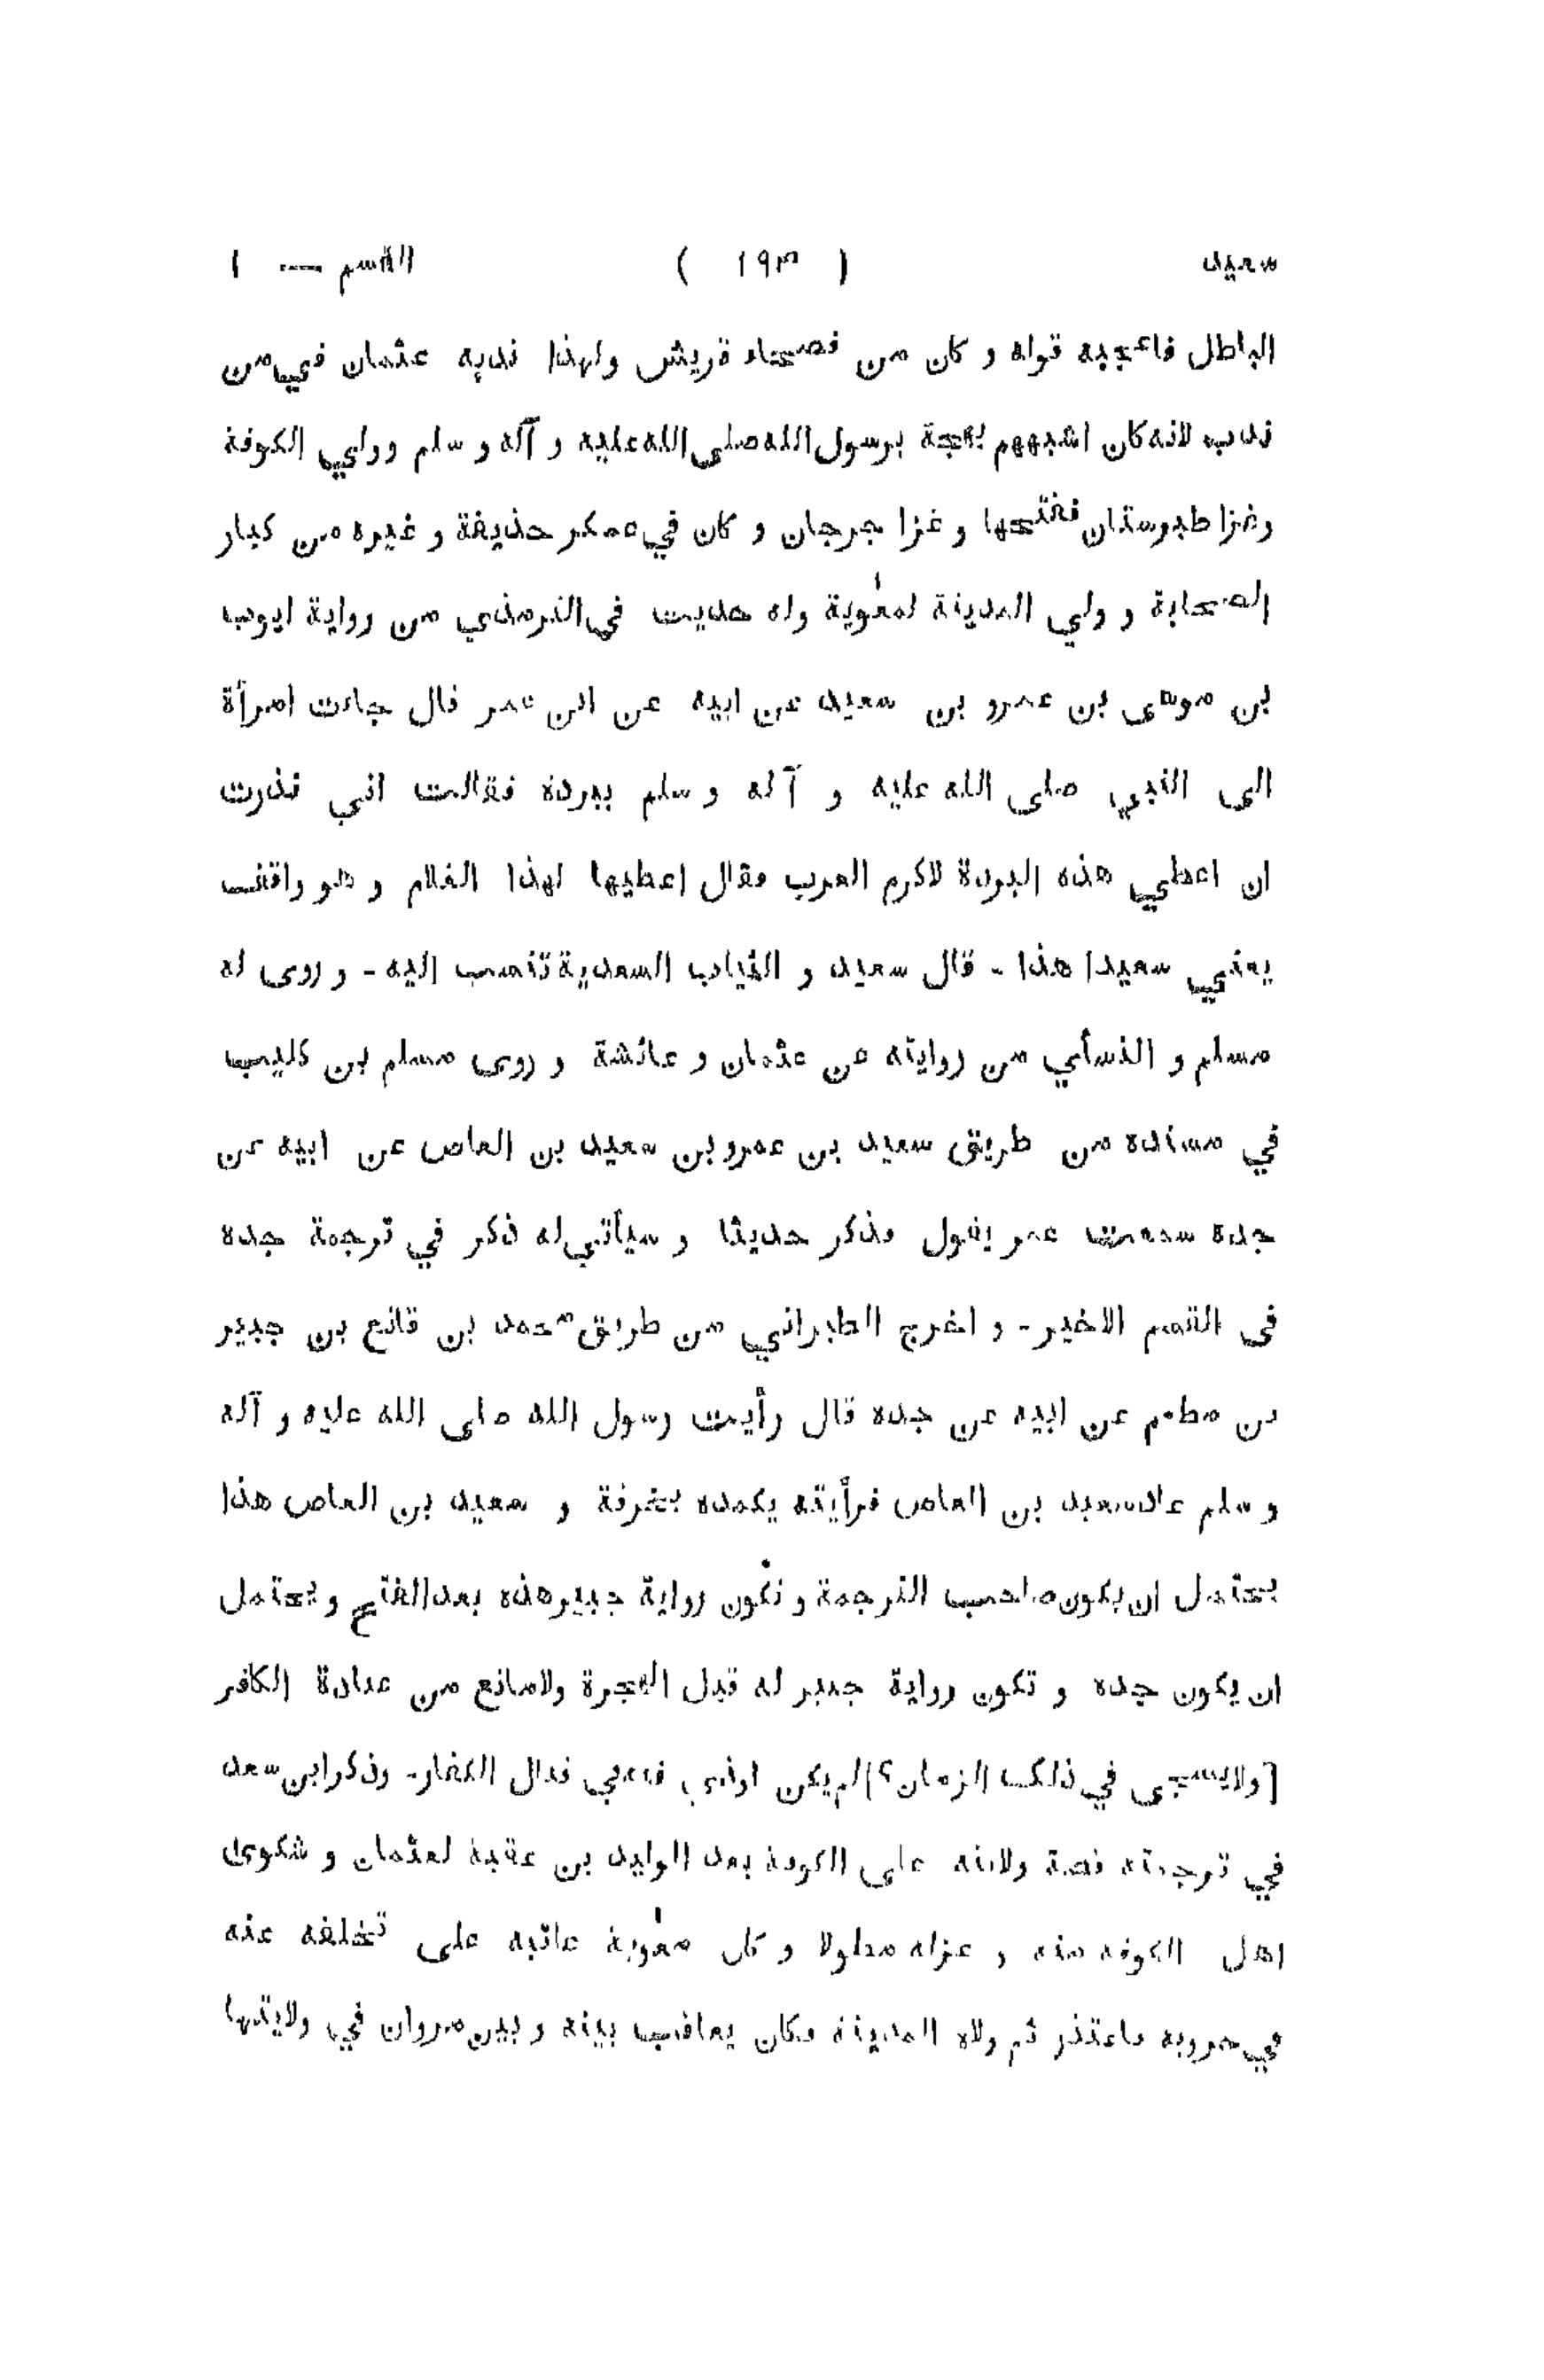 سعيد ( ١٩٣ ) القسم — ١
الباطل فاعجبه قوله و كان من فصحاء قريش ولهذا ندبه عثمان في من
ندب لانه كان اشبههم لهجة برسول الله صلى الله عليه و آله و سلم وولي الكوفة
وغزا طبرستان ففتحها و غزا جرجان و كان في عسكر حذيفة و غيره من كبار
الصحابة و ولي المدينة لمعٰوية وله حديث في الترمذي من رواية ايوب
بن موسى بن عمرو بن سعيد عن ابيه عن ابن عمر قال جاءت امرأة
الى النبي صلى الله عليه و آله و سلم ببردة فقالت اني نذرت
ان اعطي هذه البردة لاكرم العرب فقال اعطيها لهذا الغلام و هو واقف
يعني سعيدا هذا - قال سعيد و الثياب السعدية تنسب اليه - و روى له
مسلم و النسأي من روايته عن عثمان و عائشة و روى مسلم بن كليب
في مسنده من طريق سعيد بن عمرو بن سعيد بن العاص عن ابيه عن
جده سمعت عمر يقول فذكر حديثا و سيأتي له ذكر في ترجمة جده
في القسم الاخير - و اخرج الطبراني من طريق محمد بن قانع بن جبير
بن مطعم عن ابيه عن جده قال رأيت رسول الله صلى الله عليه و آله
و سلم عاد سعيد بن العاص فرأيته يكمده بخرقة و سعيد بن العاص هذا
يحتمل ان يكون صاحب الترجمة و تكون رواية جبير هذه بعد الفتح و يحتمل
ان يكون جده و تكون رواية جبير له قبل الهجرة ولا مانع من عيادة الكافر
[ولا في ذلك الزمان؟] لم يكن اوذي في قتال الكفار - وذكر ابن سعد
في ترجمته قصة ولايته على الكوفة بعد الوليد بن عقبة لعثمان و شكوى
اهل الكوفه منه و عزله مطولا و كان معٰوية عاتبه على تخلفه عنه
في حروبه فاعتذر ثم ولاه المدينة فكان يعاقب بينه و بين مروان في ولايتها